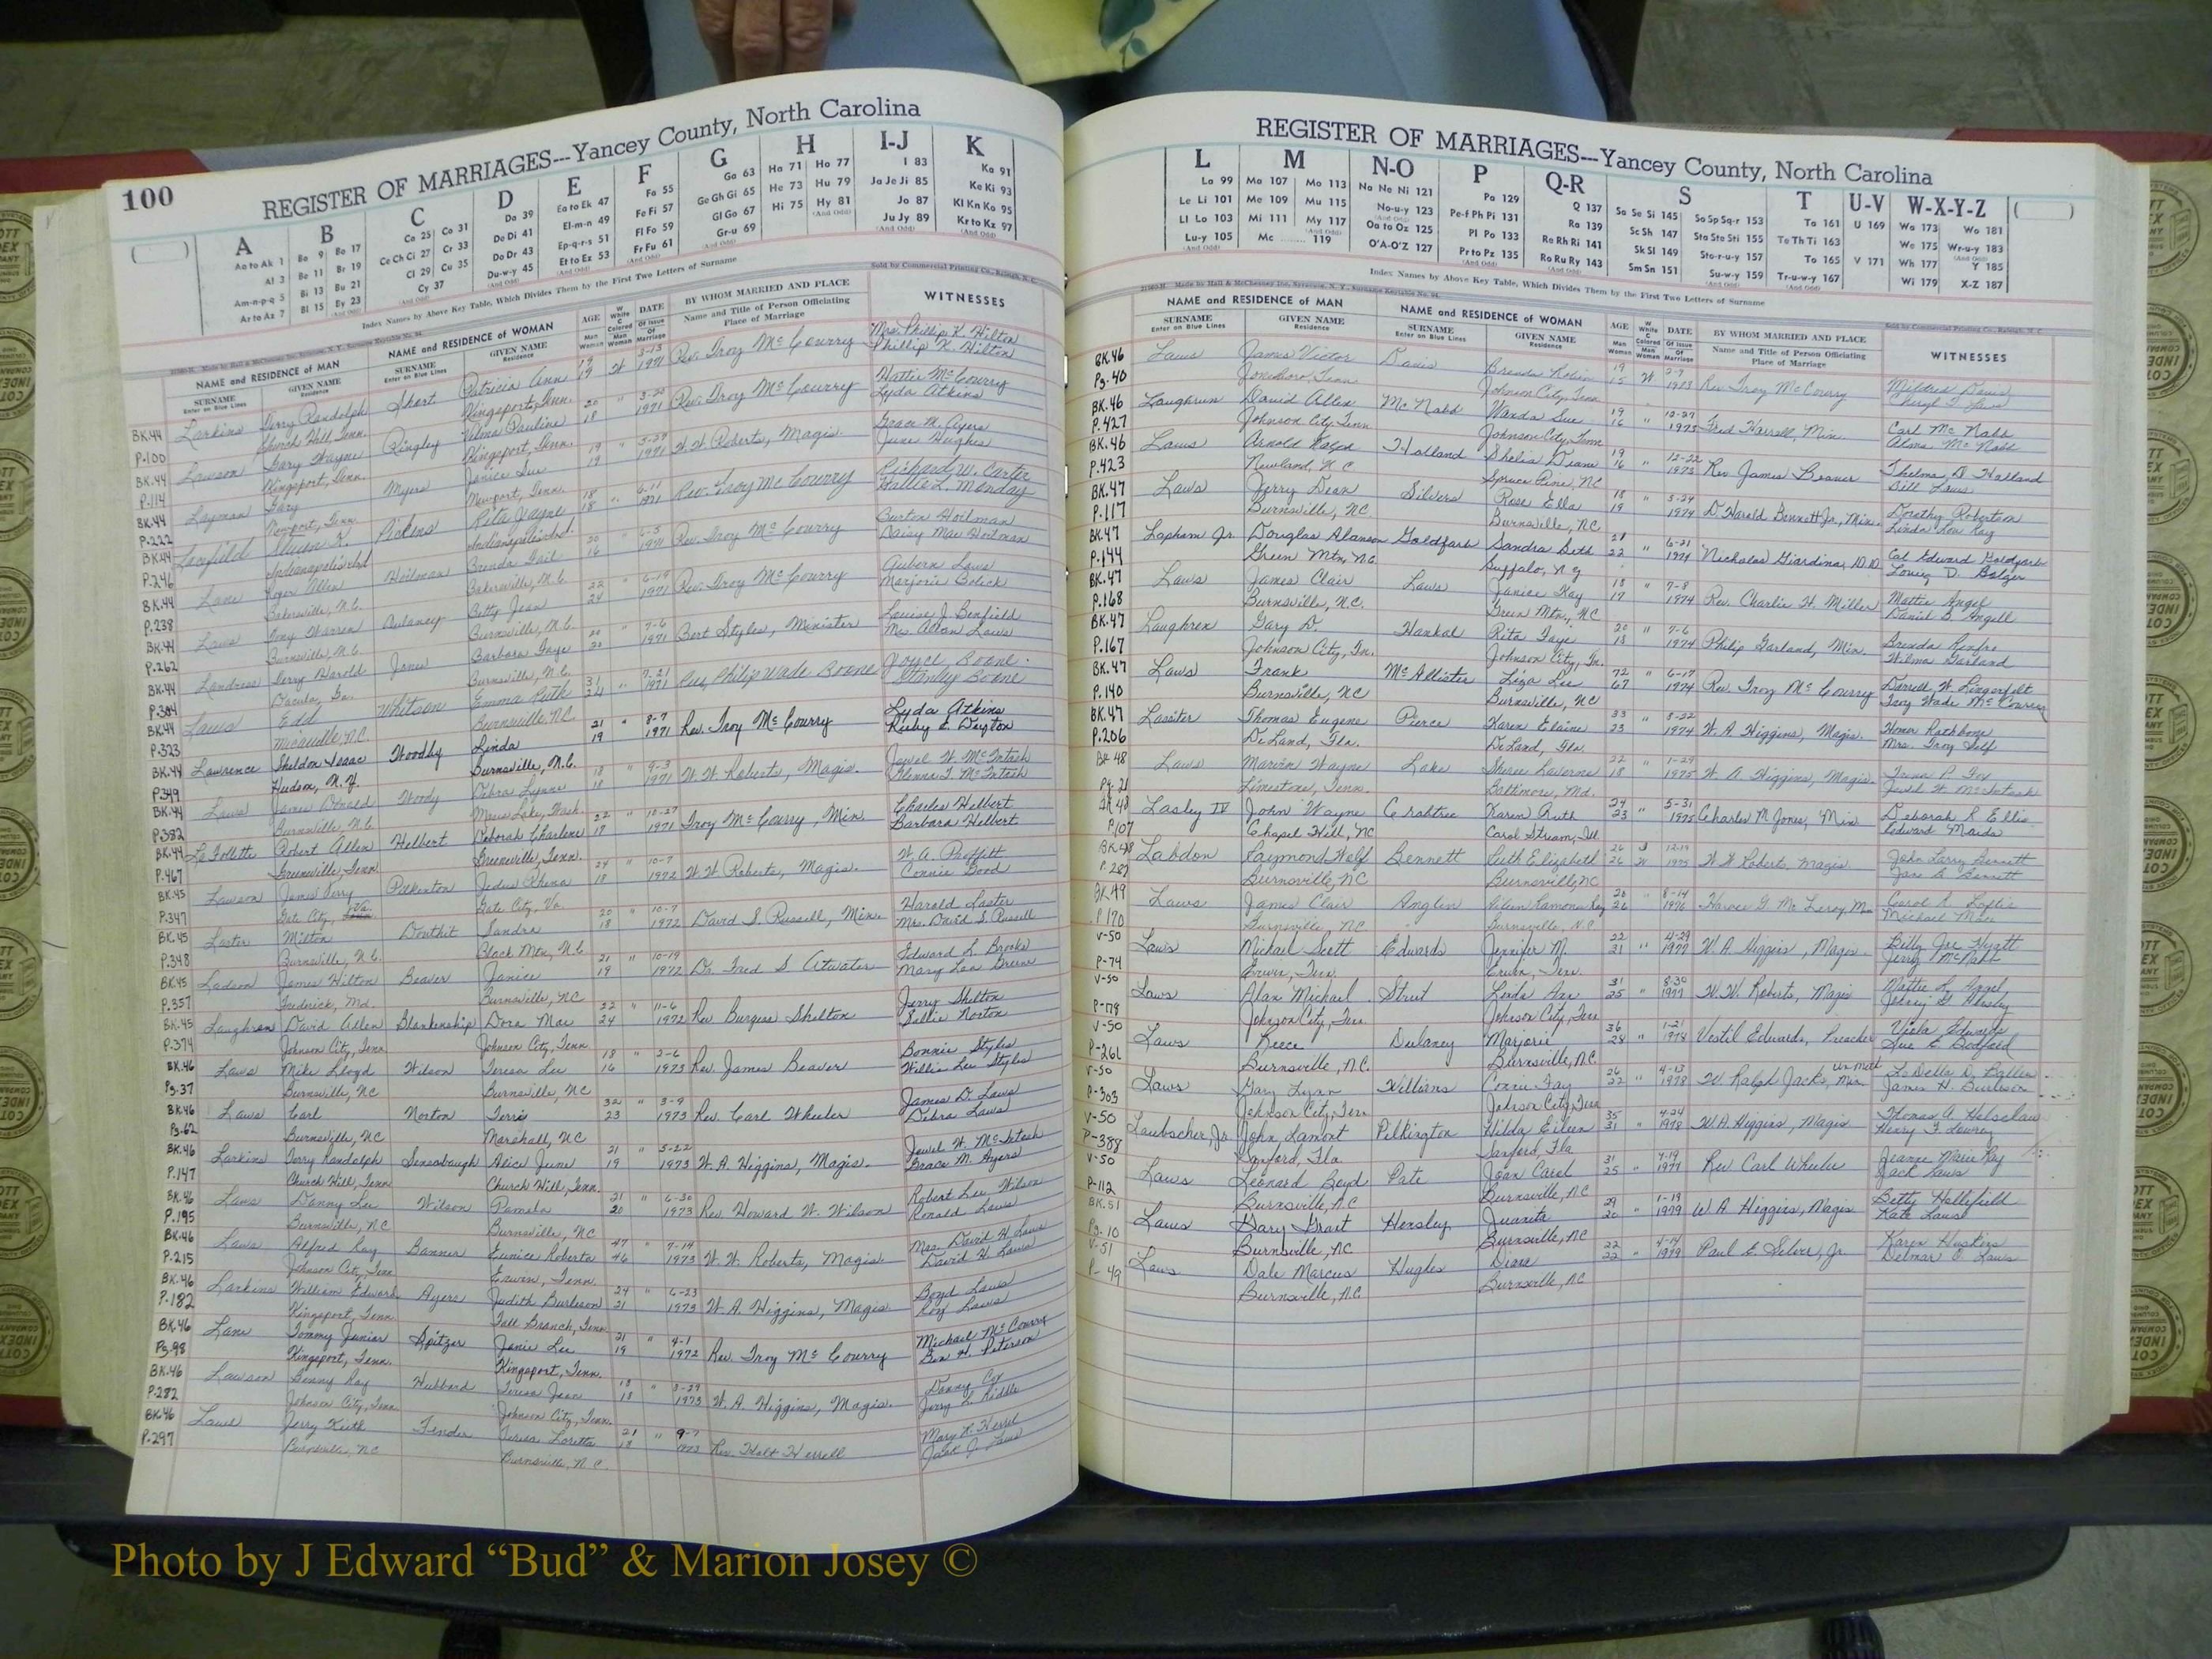 100
REGISTER OF MARRIAGES---Yancey County, North Carolina
A B C D E F G H I-J K
Aa to Ak 1 Ba 9 Bo 17 Ca 25 Co 31 Da 39 Ea to Ek 47 Fa 55 Ga 63 Ha 71 Ho 77 I 83 Ka 91
Al 3 Be 11 Br 19 Ce Ch Ci 27 Cr 33 De Di 41 El-m-n 49 Fe Fi 57 Ge Gh Gi 65 He 73 Hu 79 Ja Je Ji 85 Ke Ki 93
Am-n-p-q 5 Bi 13 Bu 21 Cl 29 Cu 35 Do Dr 43 Ep-q-r-s 51 Fl Fo 59 Gl Go 67 Hi 75 Hy 81 Jo 87 Kl Kn Ko 95
Ar to Az 7 Bl 15 By 23 Cy 37 Du-w-y 45 Et to Ez 53 Fr Fu 61 Gr-u 69 Ju Jy 89 Kr to Kz 97
Index Names by Above Key Table, Which Divides Them by the First Two Letters of Surname
Sold by Commercial Printing Co., Raleigh, N. C.
NAME and RESIDENCE OF MAN NAME and RESIDENCE OF WOMAN AGE DATE BY WHOM MARRIED AND PLACE WITNESSES
SURNAME GIVEN NAME SURNAME GIVEN NAME Name and Title of Person Officiating
Enter on Blue Lines Residence Enter on Blue Lines Residence Place of Marriage
BK.44 Larkins Jerry Randolph Short Patricia Ann 19 W 3-13 Rev. Troy McCourry Mrs. Phillip K. Hilton
P.100 Church Hill, Tenn. Kingsport, Tenn. 19 1971 Phillip K. Hilton
BK.44 Lawson Gary Wayne Ringley Velma Pauline 20 " 3-20 Rev. Troy McCourry Hattie McCourry
P.114 Kingsport, Tenn. Kingsport, Tenn. 18 1971 Lyda Atkins
BK.44 Layman Gary Myers Janice Sue 19 " 1971 W. W. Roberts, Magis. Grace M. Ayers
P.222 Newport, Tenn. Newport, Tenn. 19 June Hughes
BK.44 Steven Pickens Rita Jayne 18 " 6-11 Rev. Troy McCourry Richard W. Carter
P.246 Indianapolis, Ind. Indianapolis, Ind. 18 1971 Hattie L. Monday
BK.44 Lane Roger Allen Hoilman Brenda Gail 20 " 6-5 Rev. Troy McCourry Burton Hoilman
P.238 Bakersville, N.C. Bakersville, N.C. 16 1971 Daisy Mae Hoilman
BK.44 Laws Tony Warren Dulaney Betty Jean 22 " 6-19 Rev. Troy McCourry Auburn Laws
P.262 Burnsville, N.C. Burnsville, N.C. 24 1971 Marjorie Bolick
BK.44 Landress Jerry Harold Jones Barbara Faye 20 " 7-6 Bert Styles, Minister Louise J. Benfield
P.304 Dacula, Ga. Burnsville, N.C. 20 1971 Mrs. Alton Laws
BK.44 Laws Edd Whitson Emma Ruth 31 " 7-21 Rev. Philip Wade Boone Joyce Boone
P.323 Micaville, N.C. Burnsville, N.C. 24 1971 Stanley Boone
BK.44 Lawrence Sheldon Isaac Woodby Linda 21 " 8-7 Rev. Troy McCourry Lyda Atkins
P.349 Hudson, N.Y. Burnsville, N.C. 19 1971 Ruby E. Deyton
BK.44 Laws James Donald Woody Debra Lynne 18 " 9-3 W. W. Roberts, Magis. Jewel W. McIntosh
P.382 Burnsville, N.C. Moses Lake, Wash. 18 1971 Glenna F. McIntosh
BK.44 LaFollette Robert Allen Helbert Deborah Charlene 22 " 10-27 Troy McCourry, Min. Charles Helbert
P.467 Greeneville, Tenn. Greeneville, Tenn. 17 1971 Barbara Helbert
BK.45 Lawson James Terry Pilkenton 24 " 10-7 W. W. Roberts, Magis. W. A. Proffitt
P.347 Gate City, Va. Gate City, Va. 18 1972 Connie Good
BK.45 Laster Milton Douthit Sandra 20 " 10-7 David S. Russell, Min. Harold Laster
P.348 Burnsville, N.C. Black Mtn., N.C. 18 1972 Mrs. David S. Russell
BK.45 Ladson James Hilton Beaver Janice 21 " 10-19 Dr. Fred S. Atwater Edward L. Brooks
P.357 Frederick, Md. Burnsville, NC 19 1972 Mary Lou Greene
BK.45 Laughren David Allen Blankenship Dora Mae 22 " 11-6 Rev Burgess Shelton Jerry Shelton
P.374 Johnson City, Tenn. Johnson City, Tenn 24 1972 Sallie Norton
BK.46 Laws Mike Lloyd Wilson Teresa Lee 18 " 2-6 Rev. James Beaver Bonnie Styles
Pg.37 Burnsville, NC Burnsville, NC 16 1973 Willie Lee Styles
BK.46 Laws Carl Norton Terri 32 " 3-9 Rev. Carl Wheeler James D. Laws
Pg.62 Burnsville, NC Marshall, NC 23 1973 Debra Laws
BK.46 Larkins Terry Randolph Sensabaugh Alice June 21 " 5-22 W. A. Higgins, Magis. Jewel W. McIntosh
P.147 Church Hill, Tenn Church Hill, Tenn. 19 1973 Grace M. Ayers
BK.46 Laws Danny Lee Wilson Pamela 21 " 6-30 Rev. Howard W. Wilson Robert Lee Wilson
P.195 Burnsville, NC Burnsville, NC 20 1973 Ronald Laws
BK.46 Laws Alfred Ray Banner Eunice Roberta 47 " 7-14 W. W. Roberts, Magis. Mrs. David H. Laws
P.215 Johnson City, Tenn Erwin, Tenn. 46 1973 David H. Laws
BK.46 Larkins William Edward Ayers Judith Burleson 24 " 6-23 W. A. Higgins, Magis. Boyd Laws
P.182 Kingsport, Tenn Fall Branch, Tenn 21 1973 Roy Laws
BK.46 Lane Tommy Junior Spitzer Janie Lee 21 " 4-1 Rev. Troy McCourry Michael McCourry
Pg.98 Kingsport, Tenn. Kingsport, Tenn. 19 1972 Ben H. Peterson
BK.46 Lawson Benny Ray Hubbard Teresa Jean 18 " W. A. Higgins, Magis. Danny Cox
P.282 Johnson City, Tenn Johnson City, Tenn. 18 1973 Jerry L. Riddle
BK.46 Laws Jerry Keith Fender Teresa Loretta 21 " 9-7 Rev. Walt Herrell Mary K. Herrell
P.297 Burnsville, NC Burnsville, N.C. 18 1973 Jack J. Laws
REGISTER OF MARRIAGES---Yancey County, North Carolina
L M N-O P Q-R S T U-V W-X-Y-Z
La 99 Ma 107 Mo 113 Na Ne Ni 121 Pa 129 Q 137 Sa Se Si 145 So Sp Sq-r 153 Ta 161 U 169 Wa 173 Wo 181
Le Li 101 Me 109 Mu 115 No-u-y 123 Pe-f Ph Pi 131 Ra 139 Sc Sh 147 Sta Ste Sti 155 Te Th Ti 163 We 175 Wr-u-y 183
Ll Lo 103 Mi 111 My 117 Oa to Oz 125 Pl Po 133 Re Rh Ri 141 Sk Sl 149 Sto-r-u-y 157 To 165 V 171 Wh 177 Y 185
Lu-y 105 Mc 119 O'A-O'Z 127 Pr to Pz 135 Ro Ru Ry 143 Sm Sn 151 Su-w-y 159 Tr-u-w-y 167 Wi 179 X-Z 187
Index Names by Above Key Table, Which Divides Them by the First Two Letters of Surname
NAME and RESIDENCE OF MAN NAME and RESIDENCE OF WOMAN AGE DATE BY WHOM MARRIED AND PLACE WITNESSES
SURNAME GIVEN NAME SURNAME GIVEN NAME Name and Title of Person Officiating
Enter on Blue Lines Residence Enter on Blue Lines Residence Place of Marriage
BK.46 Laws James Victor Davis Brenda Robin 19 W 2-7 Rev. Troy McCourry Mildred Davis
Pg.40 Jonesboro, Tenn. Johnson City, Tenn 15 1973
BK.46 Laughrun David Allen McNabb Wanda Sue 19 " 12-27 Fred Harrell, Min. Carl McNabb
P.427 Johnson City, Tenn Johnson City, Tenn 16 1973 Alma McNabb
BK.46 Laws Arnold Holland Shelia Diane 19 " 12-22 Rev James Beaver Thelma D. Holland
P.423 Newland, N.C. Spruce Pine, NC 16 1973 Bill Laws
BK.47 Laws Jerry Dean Silvers Rose Ella 18 " 5-24 D. Harold Bennett Jr., Min. Dorothy Robertson
P.117 Burnsville, NC Burnsville, NC 19 1974 Linda Lou Ray
BK.47 Lapham Jr. Douglas Alanson Goldfarb Sandra Beth 21 " 6-21 Nicholas Giardina, D.D. Cal Edward Goldfarb
P.144 Green Mtn, N.C. Buffalo, N.Y. 22 1974 Louis D. Bolger
BK.47 Laws James Clair Laws Janice Kay 18 " 7-8 Rev. Charlie H. Miller Mattie Angel
P.168 Burnsville, N.C. Green Mtn., NC 17 1974 Daniel B. Angell
BK.47 Laughren Gary D. Hankal Rita Faye 20 " 7-6 Philip Garland, Min. Brenda Renfro
P.167 Johnson City, Tn. Johnson City, Tn. 18 1974 Wilma Garland
BK.47 Laws Frank McAllister Liza Lee 72 " 6-17 Rev. Troy McCourry Darrell W. Lingerfelt
P.140 Burnsville, NC Burnsville, NC 67 1974 Troy Wade McCourry
BK.47 Lassiter Thomas Eugene Pierce Karen Elaine 33 " 8-22 W. A Higgins, Magis. Homer Rathbone
P.206 DeLand, Fla. DeLand, Fla. 23 1974 Mrs. Troy Self
BK 48 Laws Marvin Wayne Lake Sheree Laverne 22 " 1-29 W. A. Higgins, Magis. Irene P. Fox
Pg.21 Limestone, Tenn. Baltimore, Md. 18 1975 Jewel W. McIntosh
BK 48 Lasley IV John Wayne Crabtree Karen Ruth 24 " 5-31 Charles M Jones, Min Deborah R Ellis
P.107 Chapel Hill, NC Carol Stream, Ill. 23 1975 Edward Maida
BK 48 Labdon Raymond Wolf Bennett Ruth Elizabeth 26 12-19 W. W. Roberts, Magis. John Larry Bennett
P.287 Burnsville, NC Burnsville, NC 26 W 1975 Jane B. Bennett
BK 49 Laws James Clair Anglin Ramona Kay 20 " 8-14 Carol L. Loftis
P 170 Burnsville, NC Burnsville, N.C. 26 1976
V-50 Laws Michael Scott Edwards Jennifer M. 22 " 4-29 W. A. Higgins, Magis. Billy Joe Hyatt
P-74 Erwin, Tenn. Erwin, Tenn. 31 1977 Jerry McNabb
V-50 Laws Alan Michael Street Linda Ann 31 " 8-30 W. W. Roberts, Magis Mattie L. Angel
P-178 Johnson City, Tenn Johnson City, Tenn 25 1977 Johnny G. Hensley
V-50 Laws Reece Dulaney Marjorie 36 " 1-21 Vestil Edwards, Preacher Viola Edwards
P-261 Burnsville, N.C. Burnsville, NC 28 1978 Sue E. Bedford
V-50 Laws Gary Lynn Williams Connie Fay 26 " 4-13 W Ralph Jacks, Un. Meth Min. LaDella D. Ballew
P-303 Johnson City, Tenn Johnson City, Tenn 22 1978 James H. Burleson
V-50 Laubscher, Jr. John Lamont Pelkington Wilda Eileen 35 " 4-24 W. A. Higgins, Magis Thomas A. Helsclaw
P-388 Sanford, Fla. Sanford, Fla 31 1978 Henry F. Lowery
V-50 Laws Leonard Boyd Pate Jean Carol 31 " 4-19 Rev Carl Wheeler Jeanne Marie Ray
P-112 Burnsville, N.C Burnsville, NC 25 1977 Jack Laws
BK.51 Laws Gary Grant Hensley Juanita 29 " 1-19 W A Higgins, Magis Betty Hollifield
Pg-10 Burnsville, NC Burnsville, NC 20 1979 Kate Laws
V-51 Laws Dale Marcus Hughes Diane 22 " 4-14 Paul E. Silver, Jr. Karen Huskins
P-49 Burnsville, N.C. Burnsville, NC 22 1979 Delmar D. Laws
Photo by J Edward “Bud” & Marion Josey ©